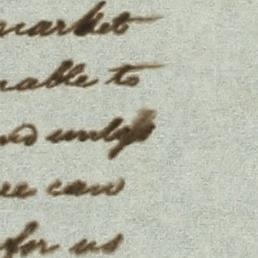 market
able to
unless
we can
for us